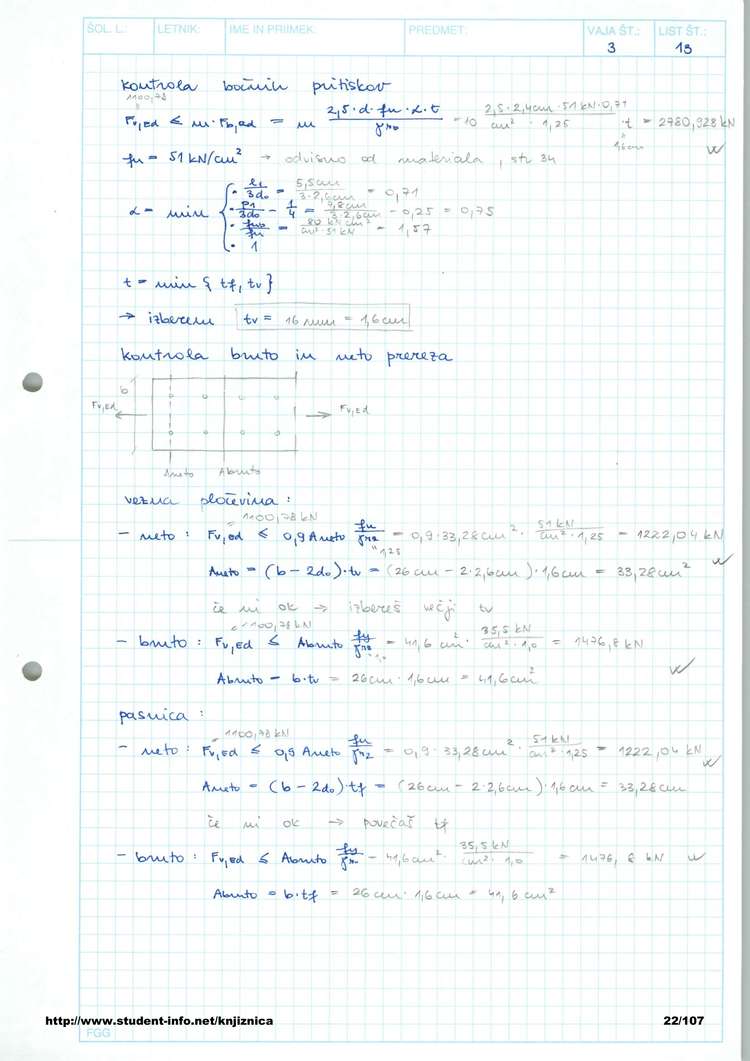 ŠOL. L.: LETNIK: IME IN PRIIMEK: PREDMET: VAJA ŠT.: 3 LIST ŠT.: 13
kontrola bočnih pritiskov
1100,78
Fv,Ed ≤ m · Fb,Rd = m 2,5 · d · fu · α · t / γM2 = 10 2,5 · 2,4cm · 51 kN · 0,71 / cm² · 1,25 · t = 2780,928 kN
1,6cm
fu = 51 kN/cm² → odvisno od materiala, str 34
α = min { • e1/3d0 = 5,5cm/3·2,6cm = 0,71
• p1/3d0 - 1/4 = 7,8cm/3·2,6cm - 0,25 = 0,75
• fub/fu = 80 kN cm²/cm² 51 kN = 1,57
• 1
t = min { tf, tv }
→ izberem tv = 16 mm = 1,6cm
kontrola bruto in neto prereza
b
Fv,Ed Fv,Ed
Aneto Abruto
vezna pločevina :
1100,78 kN
- neto : Fv,Ed ≤ 0,9 Aneto fu/γM2 = 0,9 · 33,28cm² · 51 kN/cm² · 1,25 = 1222,04 kN
1,25
Aneto = (b - 2d0) · tv = (26cm - 2·2,6cm) · 1,6cm = 33,28cm²
če ni ok → izbereš večji tv
1100,78 kN
- bruto : Fv,Ed ≤ Abruto fy/γM0 = 41,6 cm² · 35,5 kN/cm² · 1,0 = 1476,8 kN
1,0
Abruto = b·tv = 26cm · 1,6cm = 41,6cm²
pasnica :
1100,78 kN
- neto : Fv,Ed ≤ 0,9 Aneto fu/γM2 = 0,9 · 33,28cm² · 51 kN/cm² · 1,25 = 1222,04 kN
Aneto = (b - 2d0) · tf = (26cm - 2·2,6cm) · 1,6cm = 33,28cm
če ni ok → povečaš tf
- bruto : Fv,Ed ≤ Abruto fy/γM0 = 41,6cm² · 35,5 kN/cm² · 1,0 = 1476,8 kN
Abruto = b·tf = 26cm · 1,6cm = 41,6cm²
http://www.student-info.net/knjiznica 22/107
FGG